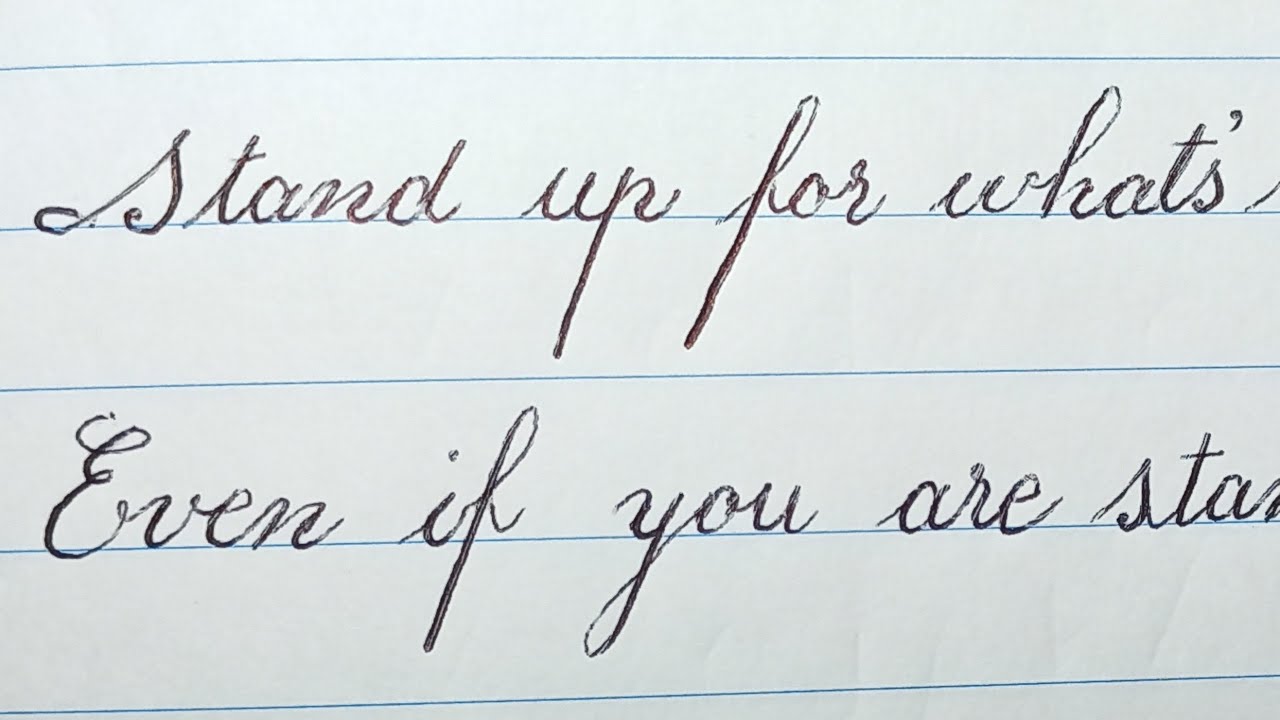 Stand up for what's
Even if you are stan